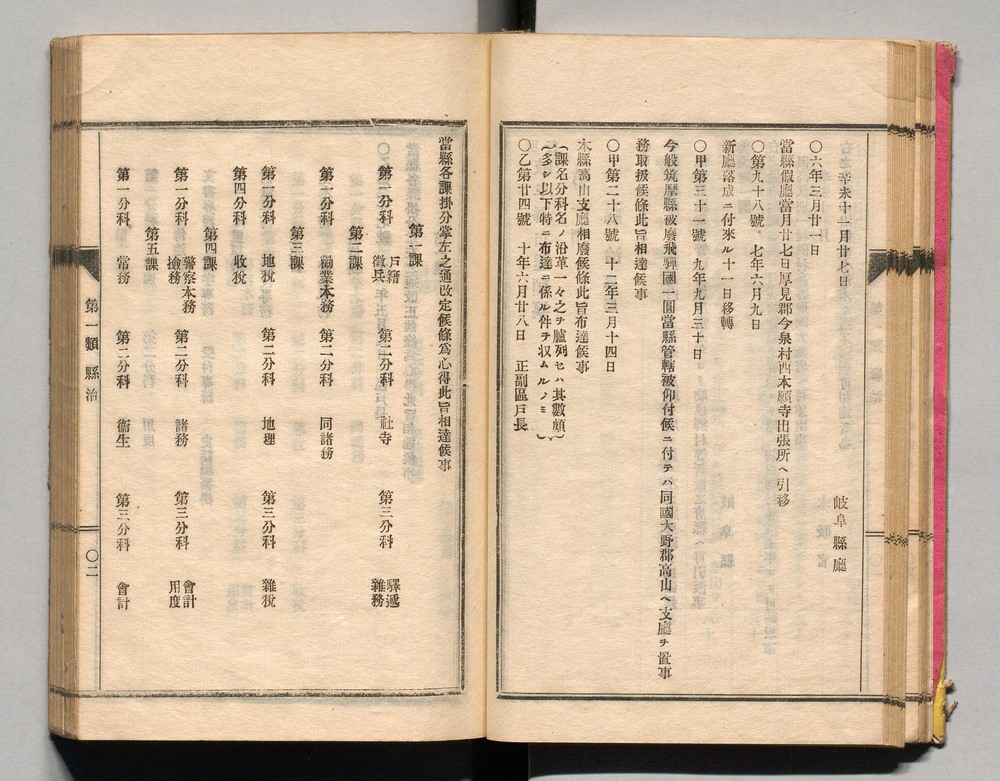 辛未十一月廿七日
岐阜縣廳
〇六年三月廿一日
當縣假廳當月廿七日厚見郡今泉村西本願寺出張所ヘ引移
〇第九十八號　七年六月九日
新廳落成ニ付來ル十一日移轉
〇甲第三十一號　九年九月三十日
今般筑摩縣被廢飛驒國一圓當縣管轄被仰付候ニ付テハ同國大野郡高山ヘ支廳ヲ置事
務取扱候條此旨相達候事
〇甲第二十八號　十二年三月十四日
本縣高山支廳相廢候條此旨布達候事
（課名分科名ノ沿革一々之ヲ臚列セハ其數頗）
（ル多シ以下特ニ布達ニ係ル件ヲ収ムルノミ）
〇乙第廿四號　十年六月廿八日　正副區戸長
當縣各課掛分掌左之通改定候條爲心得此旨相達候事
第一課
第一分科　戸籍徵兵　第二分科　社寺　第三分科　驛遞雜務
第二課
第一分科　勸業本務　第二分科　同諸務
第三課
第一分科　地稅　第二分科　地理　第三分科　雜稅
第四分科　收稅
第四課
第一分科　警察本務撿務　第二分科　諸務　第三分科　會計用度
第五課
第一分科　常務　第二分科　衞生　第三分科　會計
第一類　縣治
〇二